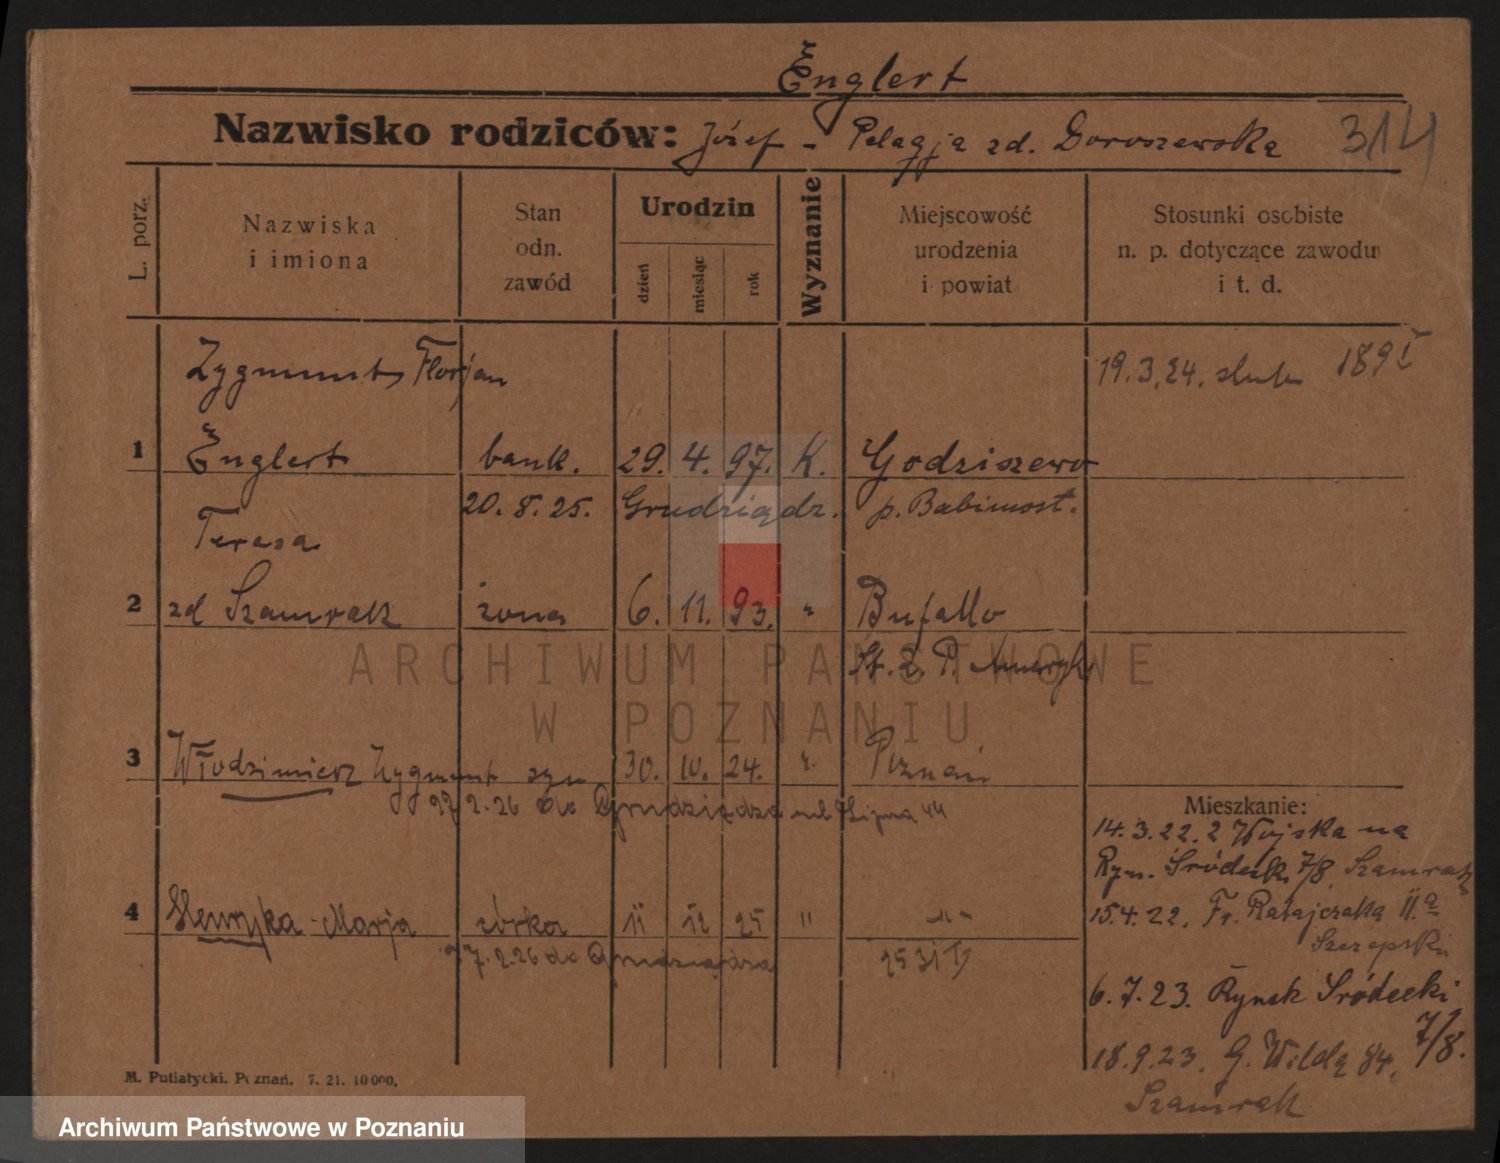 Englert
Nazwisko rodziców: Józef - Pelagja zd. Doroszewska 314
L. porz.
Nazwiska i imiona
Stan odn. zawód
Urodzin
dzień miesiąc rok
Wyznanie
Miejscowość urodzenia i powiat
Stosunki osobiste n. p. dotyczące zawodu i t. d.
Zygmunt Florjan 19.3.24. ślub
1 Englert bank. 29. 4. 97. K. Godziszewo
20.8.25. Grudziądz. p. Babimost.
Teresa
2 zd Szamrak żona 6. 11. 93. " Buffallo
St. Z. P. Ameryk
ARCHIWUM PAŃSTWOWE
W POZNANIU
3 Włodzimierz Zygmunt syn 30. 10. 24. " Poznań
27.2.26 do Grudziądza ul Lipna 44
4 Henryka-Marja córka 11 12 25 " -"-
27.2.26 do Grudziądza
Mieszkanie:
14.3.22. 2 Wojska na
Ryn. Śródecki 7/8. Szamrak
15.4.22. Fr. Ratajczaka 11.a
6.7.23. Rynek Śródecki
7/8.
18.9.23. G. Wilda 84.
Szamrak
M. Putiatycki. Poznań. 7. 21. 10 000.
Archiwum Państwowe w Poznaniu